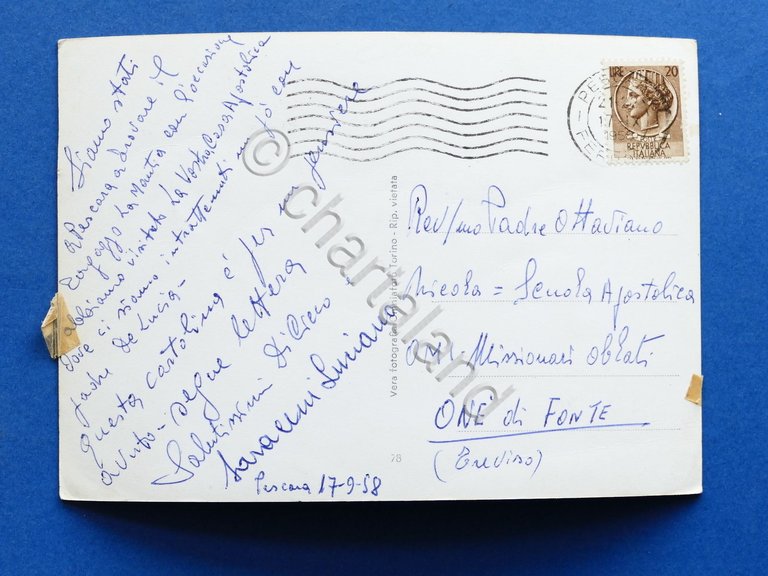 Siamo stati
a Pescara a trovare il
ragazzo La Mantia con l'occasione
abbiamo visitato la Vostra Casa Apostolica
dove ci siamo intrattenuti un pò con
padre De Lucia -
Questa cartolina è per un pensiero
avuto - segue lettera
Salutissimi Di Cicco
Saraceni Luciana
Pescara 17-9-58
Vera fotografia
Torino - Rip. vietata
28
LIRE 20
REPVBBLICA
ITALIANA
Rev/mo Padre Ottaviano
Nicola = Scuola Apostolica
OMI Missionari Oblati
ONE' di FONTE
(Treviso)
© chartaland